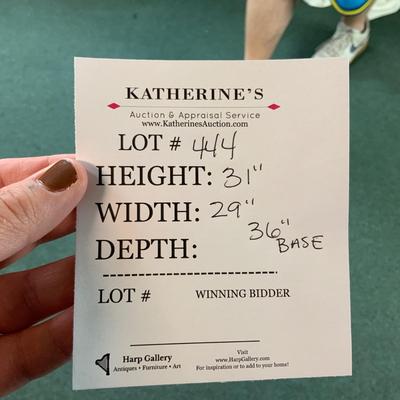 KATHERINE'S
Auction & Appraisal Service
www.KatherinesAuction.com
LOT # 444
HEIGHT: 31"
WIDTH: 29"
36" BASE
DEPTH:
LOT # WINNING BIDDER
Harp Gallery
Antiques • Furniture • Art
Visit
www.HarpGallery.com
For inspiration or to add to your home!